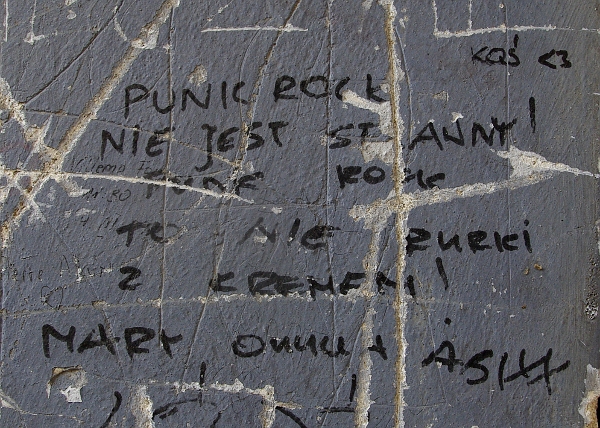 KOŚ <3
PUNK ROCK
NIE JEST STRAWNY!
PUNK ROCK
TO NIE RURKI
Z KREMEM!
MARY